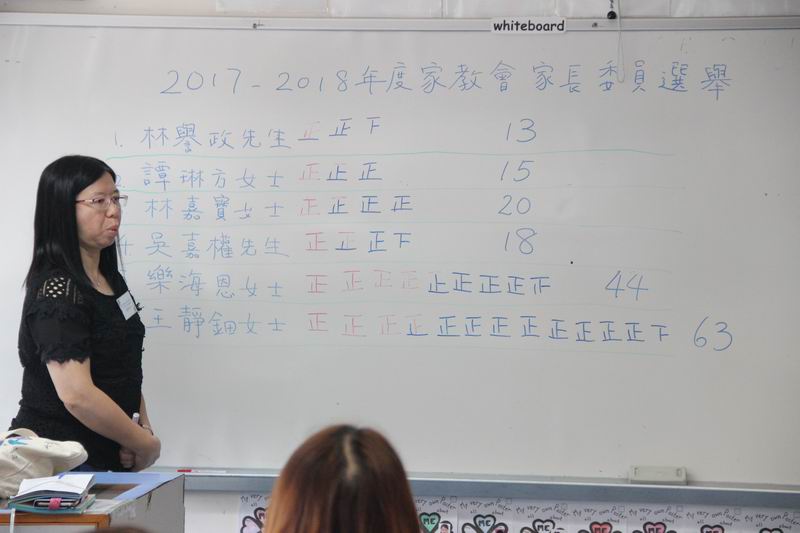 whiteboard
2017-2018年度家教會 家長委員選舉
1. 林譽政先生 正正下 13
2. 譚琳方女士 正正正 15
林嘉寶女士 正正正正 20
4. 吳嘉權先生 正正正下 18
樂海恩女士 正正正正正正正正正 44
王靜鈿女士 正正正正正正正正正正正正下 63